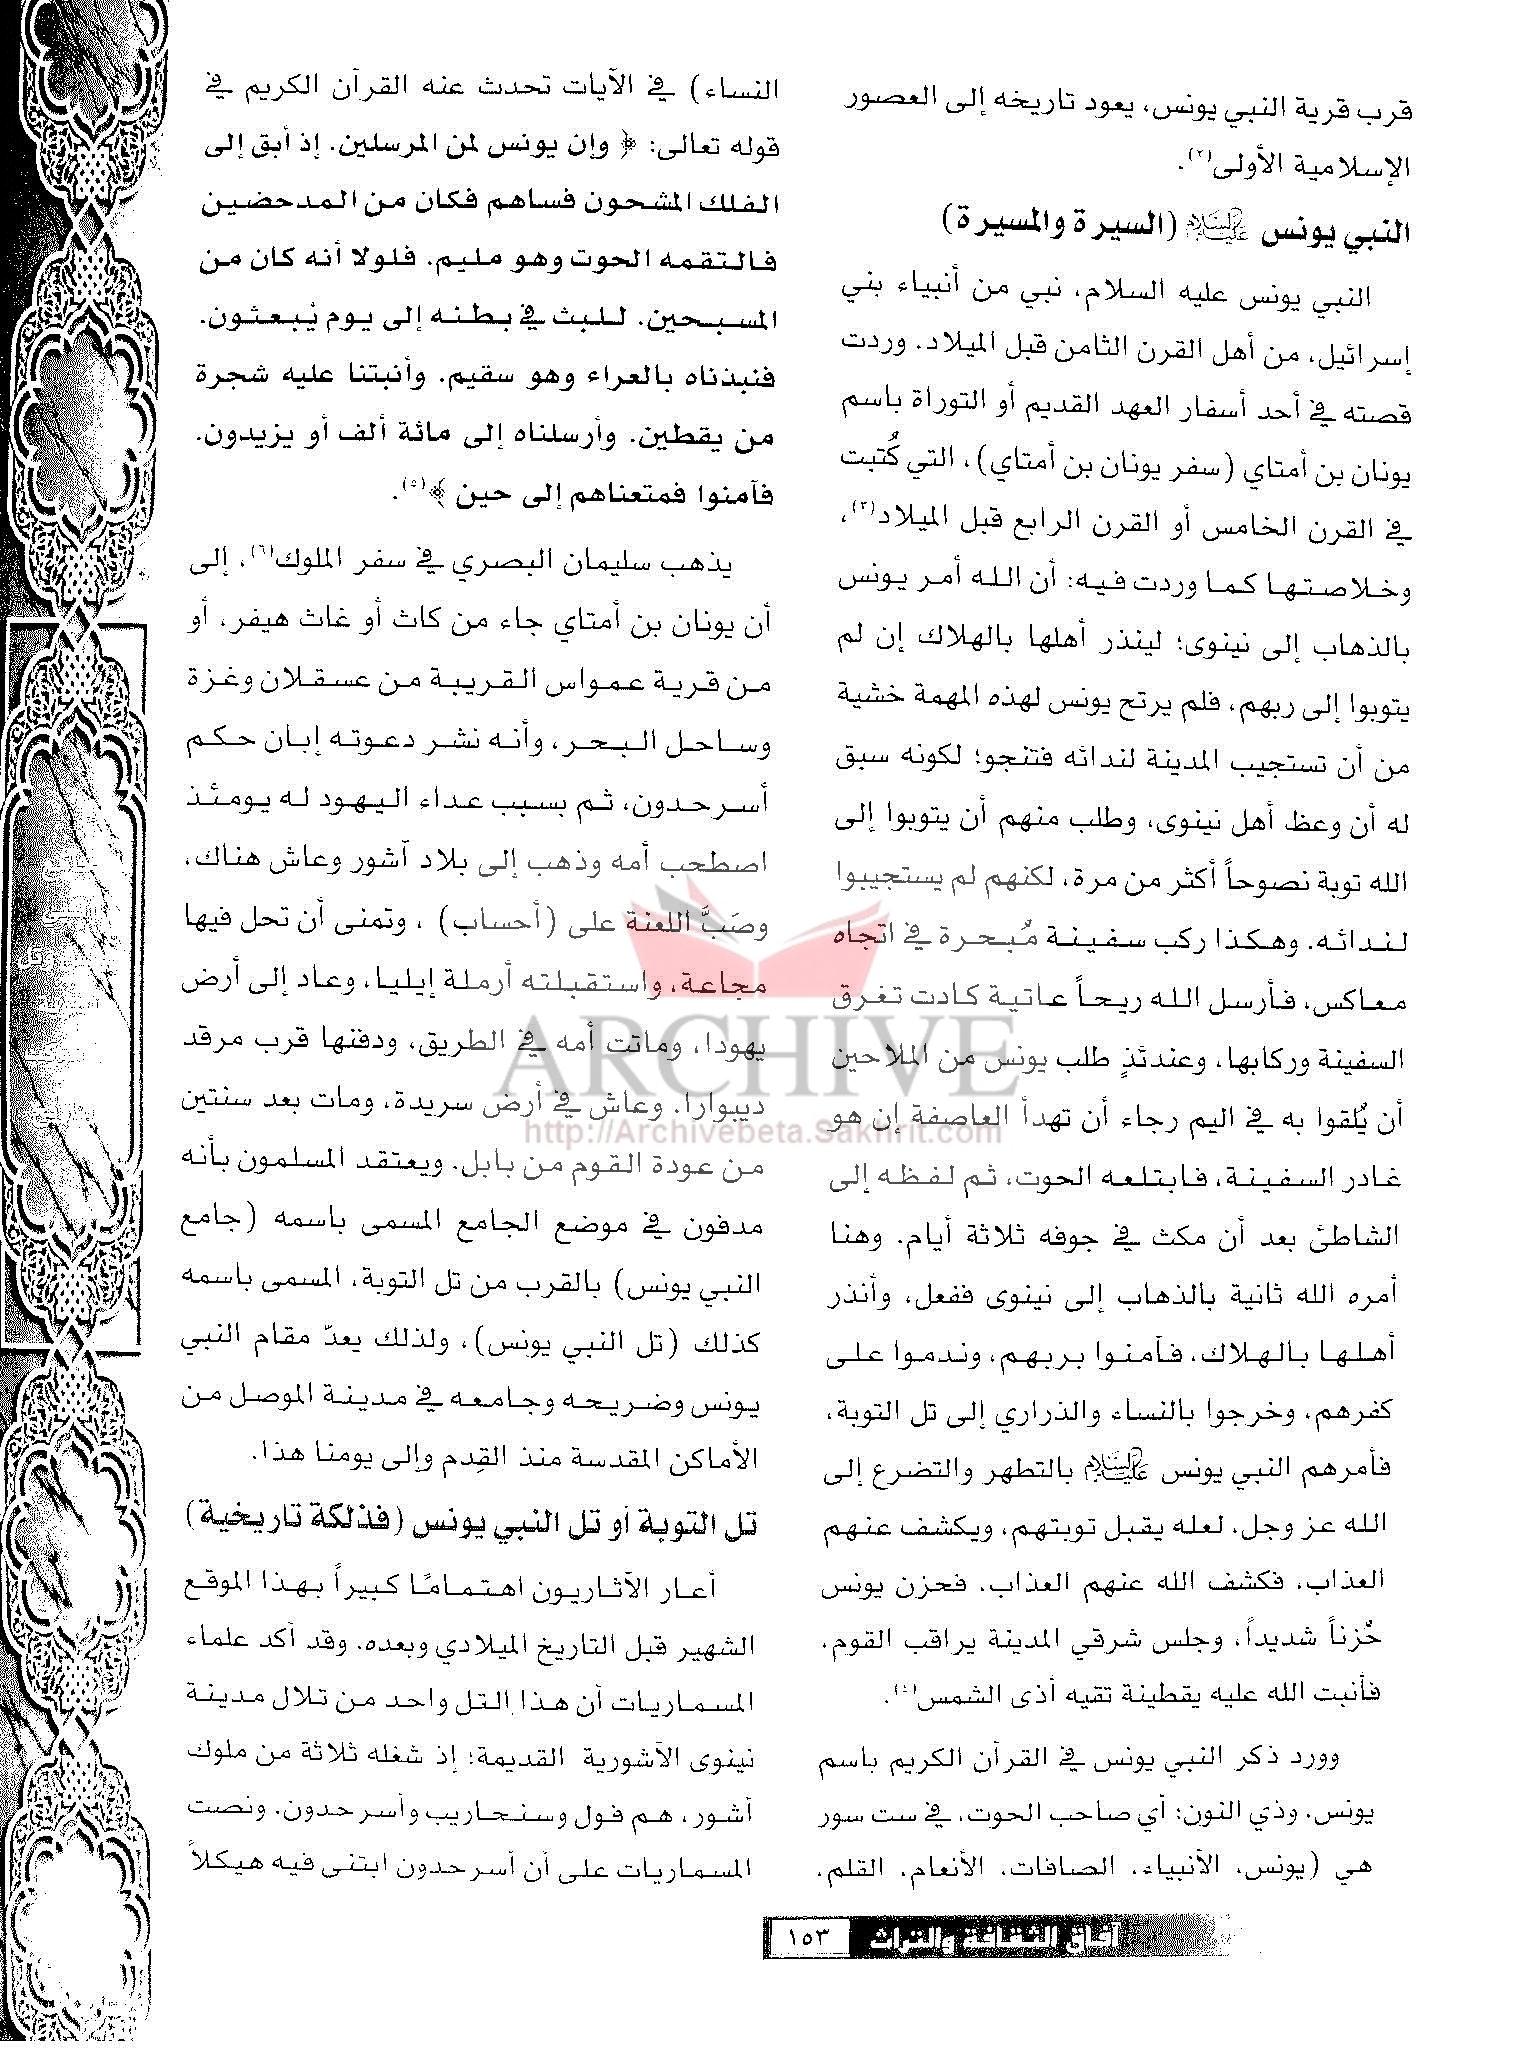 قرب قرية النبي يونس، يعود تاريخه إلى العصور
الإسلامية الأولى(٢).
النبي يونس عليه السلام (السيرة والمسيرة)
النبي يونس عليه السلام، نبي من أنبياء بني
إسرائيل، من أهل القرن الثامن قبل الميلاد. وردت
قصته في أحد أسفار العهد القديم أو التوراة باسم
يونان بن أمتاي (سفر يونان بن أمتاي)، التي كُتبت
في القرن الخامس أو القرن الرابع قبل الميلاد(٣)،
وخلاصتها كما وردت فيه: أن الله أمر يونس
بالذهاب إلى نينوى؛ لينذر أهلها بالهلاك إن لم
يتوبوا إلى ربهم، فلم يرتح يونس لهذه المهمة خشية
من أن تستجيب المدينة لندائه فتنجو؛ لكونه سبق
له أن وعظ أهل نينوى، وطلب منهم أن يتوبوا إلى
الله توبة نصوحاً أكثر من مرة، لكنهم لم يستجيبوا
لندائه. وهكذا ركب سفينة مُبحرة في اتجاه
معاكس، فأرسل الله ريحاً عاتية كادت تغرق
السفينة وركابها، وعندئذٍ طلب يونس من الملاحين
أن يُلقوا به في اليم رجاء أن تهدأ العاصفة إن هو
غادر السفينة، فابتلعه الحوت، ثم لفظه إلى
الشاطئ بعد أن مكث في جوفه ثلاثة أيام. وهنا
أمره الله ثانية بالذهاب إلى نينوى ففعل، وأنذر
أهلها بالهلاك، فآمنوا بربهم، وندموا على
كفرهم، وخرجوا بالنساء والذراري إلى تل التوبة،
فأمرهم النبي يونس عليه السلام بالتطهر والتضرع إلى
الله عز وجل، لعله يقبل توبتهم، ويكشف عنهم
العذاب، فكشف الله عنهم العذاب، فحزن يونس
حُزناً شديداً، وجلس شرقي المدينة يراقب القوم،
فأنبت الله عليه يقطينة تقيه أذى الشمس(٤).
وورد ذكر النبي يونس في القرآن الكريم باسم
يونس، وذي النون؛ أي صاحب الحوت، في ست سور
هي (يونس، الأنبياء، الصافات، الأنعام، القلم،
النساء) في الآيات تحدث عنه القرآن الكريم في
قوله تعالى: ﴿ وإن يونس لمن المرسلين. إذ أبق إلى
الفلك المشحون فساهم فكان من المدحضين
فالتقمه الحوت وهو مليم. فلولا أنه كان من
المسبحين. للبث في بطنه إلى يوم يُبعثون.
فنبذناه بالعراء وهو سقيم. وأنبتنا عليه شجرة
من يقطين. وأرسلناه إلى مائة ألف أو يزيدون.
فآمنوا فمتعناهم إلى حين ﴾(٥).
يذهب سليمان البصري في سفر الملوك(٦)، إلى
أن يونان بن أمتاي جاء من كاث أو غاث هيفر، أو
من قرية عمواس القريبة من عسقلان وغزة
وساحل البحر، وأنه نشر دعوته إبان حكم
أسرحدون، ثم بسبب عداء اليهود له يومئذ
اصطحب أمه وذهب إلى بلاد آشور وعاش هناك،
وصَبَّ اللعنة على (أحساب) ، وتمنى أن تحل فيها
مجاعة، واستقبلته أرملة إيليا، وعاد إلى أرض
يهودا، وماتت أمه في الطريق، ودفنها قرب مرقد
ديبوارا. وعاش في أرض سريدة، ومات بعد سنتين
من عودة القوم من بابل. ويعتقد المسلمون بأنه
مدفون في موضع الجامع المسمى باسمه (جامع
النبي يونس) بالقرب من تل التوبة، المسمى باسمه
كذلك (تل النبي يونس)، ولذلك يعدّ مقام النبي
يونس وضريحه وجامعه في مدينة الموصل من
الأماكن المقدسة منذ القِدم وإلى يومنا هذا.
تل التوبة أو تل النبي يونس (فذلكة تاريخية)
أعار الآثاريون اهتمامًا كبيراً بهذا الموقع
الشهير قبل التاريخ الميلادي وبعده. وقد أكد علماء
المسماريات أن هذا التل واحد من تلال مدينة
نينوى الآشورية القديمة؛ إذ شغله ثلاثة من ملوك
آشور، هم فول وسنحاريب وأسرحدون. ونصت
المسماريات على أن أسرحدون ابتنى فيه هيكلاً
ARCHIVE
http://Archivebeta.Sakhrit.com
آفاق الثقافة والتراث ١٥٣